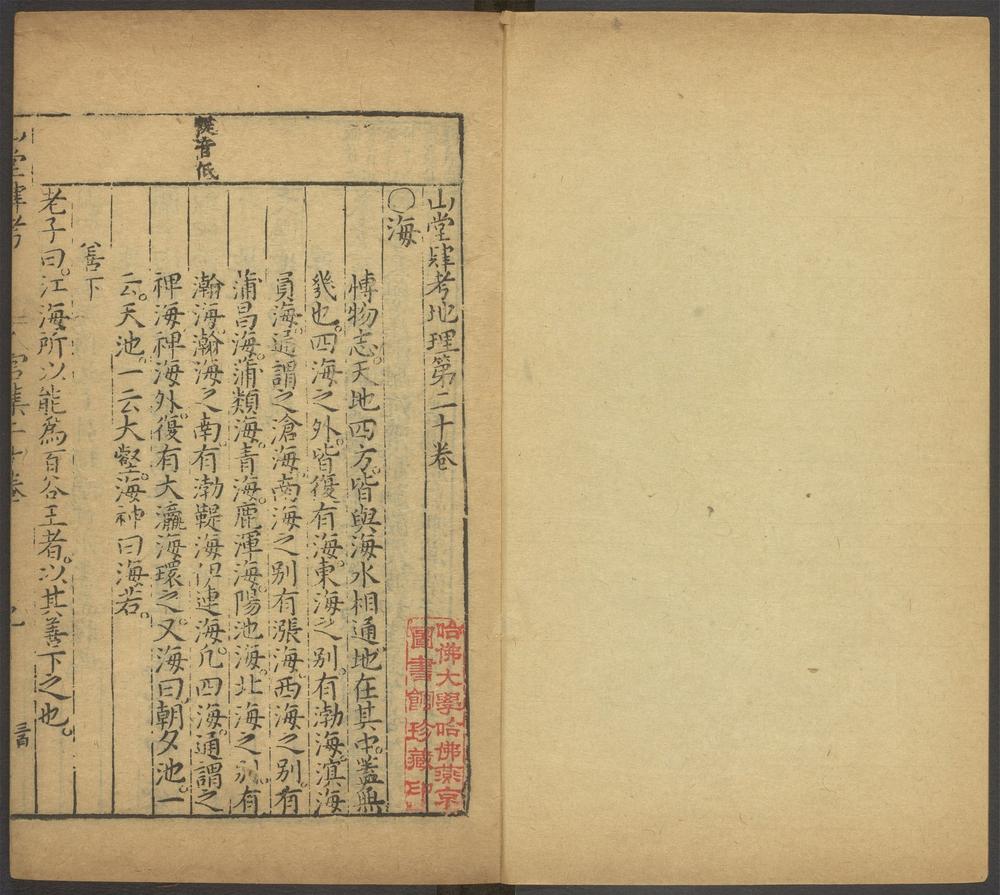 山堂肆考地理第二十卷
○海
博物志。天地四方。皆與海水相通。地在其中。蓋無
幾也。四海之外。皆復有海。東海之別。有渤海。滇海
員海。通謂之滄海。南海之別有漲海。西海之別。有
蒲昌海。蒲類海。青海。鹿渾海。陽池海。北海之別。有
瀚海。瀚海之南。有渤鞮海。伊連海。凡四海。通謂之
裨海。裨海外。復有大瀛海環之。又海曰朝夕池。一
云。天池。一云大壑。海神曰海若。
善下
老子曰。江海所以能爲百谷王者。以其善下之也。
山堂肆考
宮集二十卷
鞮音低
哈佛大學哈佛燕京
圖書館珍藏印